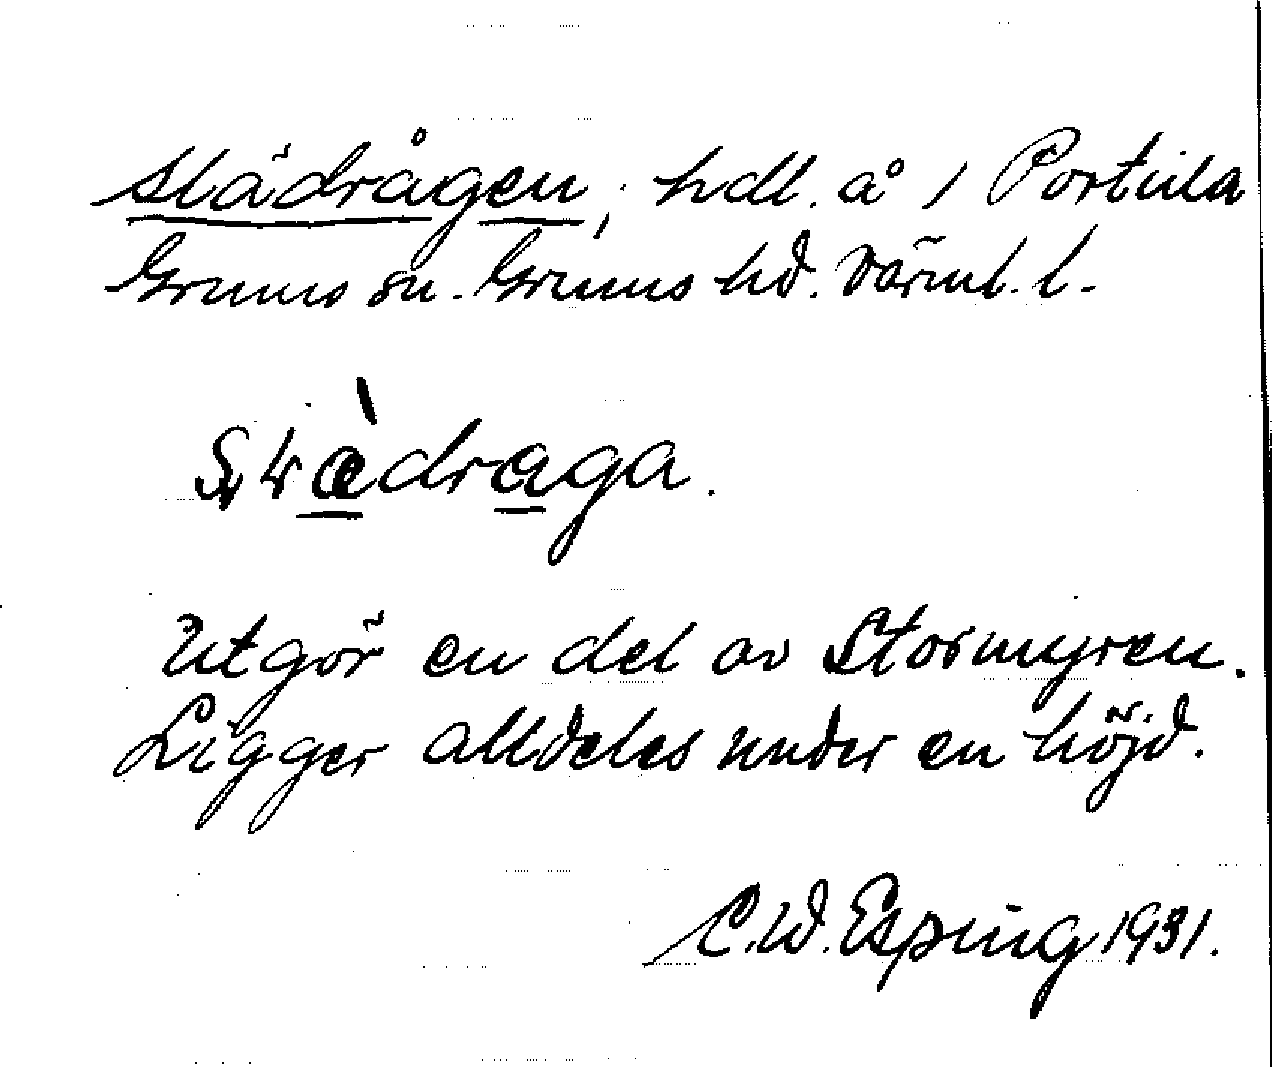 Slädrågen, hdl. å / Portila
Grums sn. Grums hd. Värml. l.
dràga.
Utgör en del av Stormyren.
Ligger alldeles under en höjd.
C.W. Esping 1931.